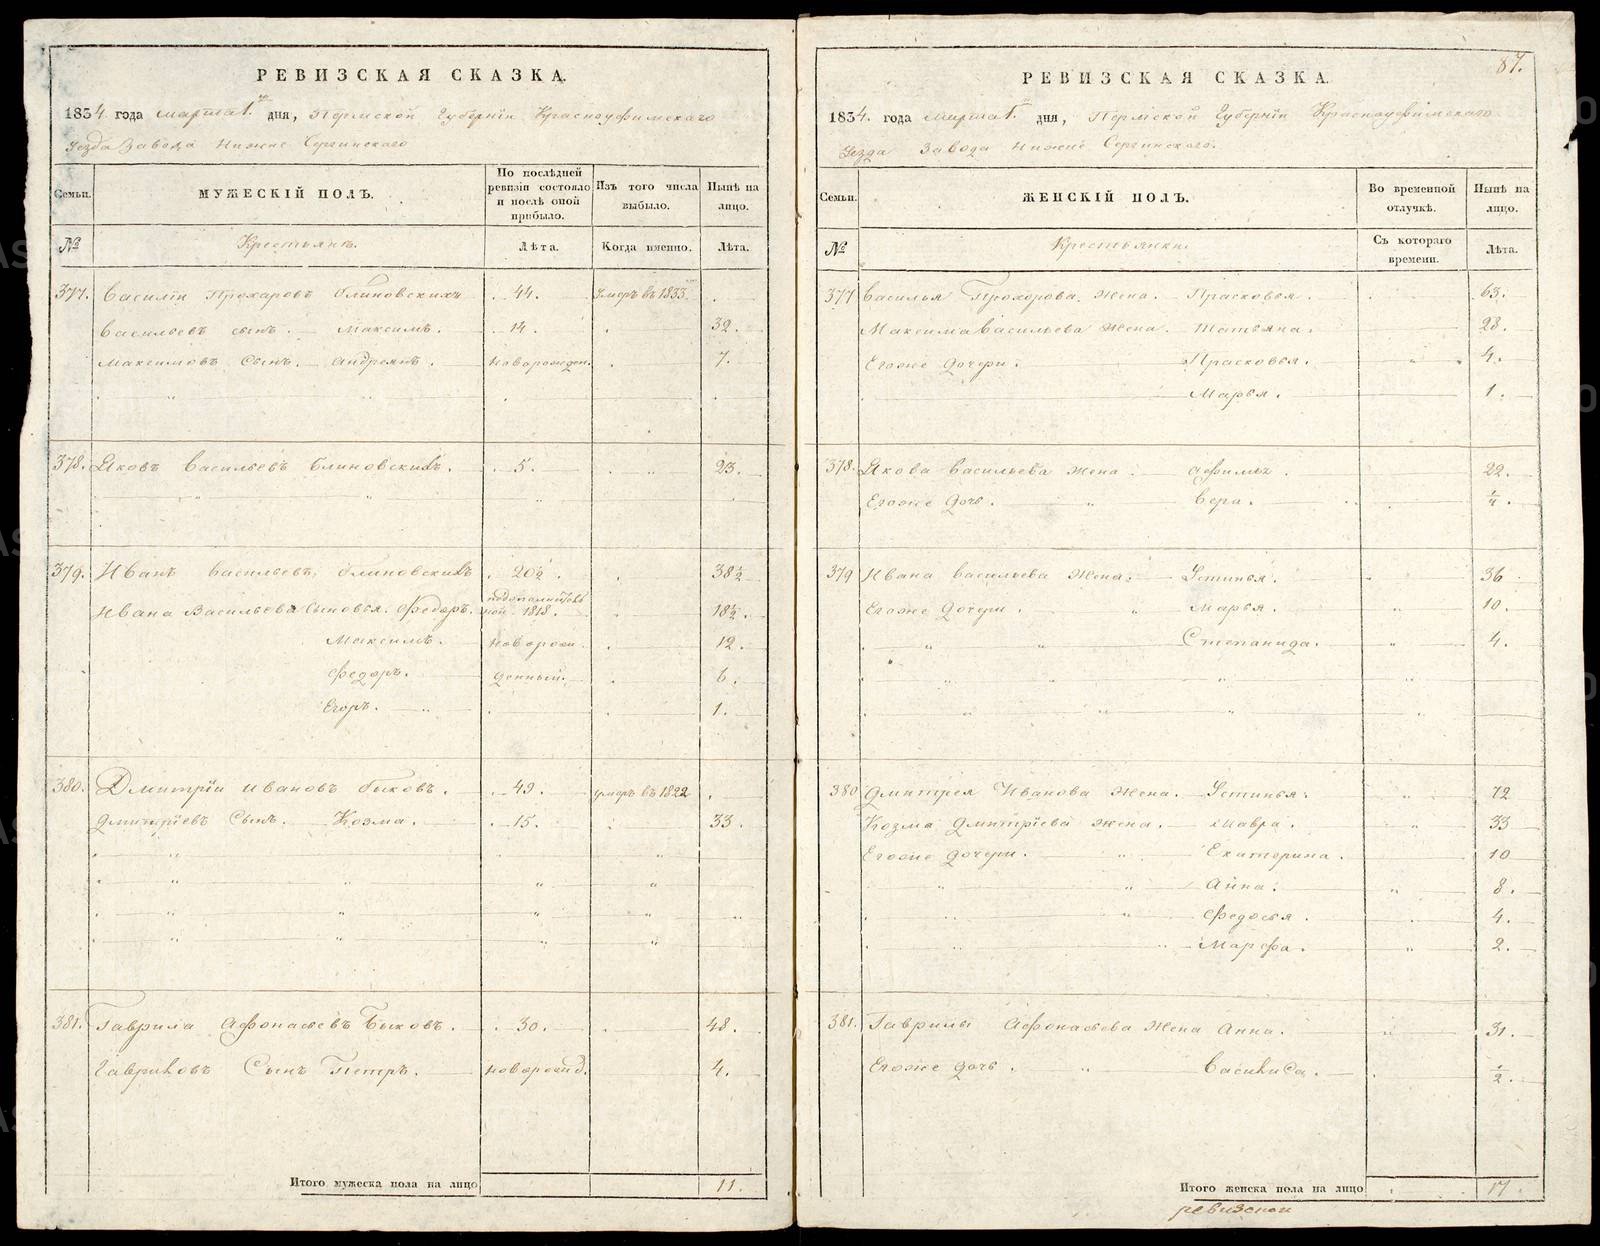 РЕВИЗСКАЯ СКАЗКА.
1834. года марта 1го дня, Пермской Губернiи Красноуфимского
Уезда Завода Нижне Сергинского
Семьи.
МУЖЕСКIЙ ПОЛЪ.
По последней ревизiи состояло и послѣ оной прибыло.
Изъ того числа выбыло.
Нынѣ на лицо.
№
Крестьянъ.
Лѣта.
Когда именно.
Лѣта.
377. Василiи Прохаровъ блиновскихъ 44. умеръ въ 1833.
Васильевъ сынъ. Максимъ. 14. 32.
Максимовъ Сынъ. андреянъ. новорожден. 7.
378. Яковъ Васильевъ блиновскихъ. 5. 23.
379. Иванъ васильевъ блиновскихъ 20½. 38½
Ивана Васильева Сыновья. Федоръ. 1818. 18½.
Максимъ. новорож 12
федоръ. денныи. 6.
Егоръ. 1.
380. Дмитрiи ивановъ быковъ. 49. умеръ въ 1822
Дмитрiевъ Сынъ. Козма. 15. 33.
381. Гаврила афонасьевъ Быковъ. 30. 48.
Гавриловъ Сынъ Петръ. новорожд. 4.
Итого мужеска пола на лицо 11.
87.
РЕВИЗСКАЯ СКАЗКА.
1834. года марта 1го дня, Пермской Губернiи Красноуфимского
Уезда Завода нижне Сергинского.
Семьи.
ЖЕНСКIЙ ПОЛЪ.
Во временной отлучкѣ.
Нынѣ на лицо.
№
Крестьянки.
Съ котораго времени.
Лѣта.
377 Василья Прохорова жена. Прасковья. 63.
Максима васильева жена. татьяна. 28.
Егоже дочери. Прасковья. 4.
Марья. 1.
378. Якова васильева жена. афимья. 22.
Егоже дочь. вера. ¼.
379 Ивана васильева жена. Устинья. 36
Егоже дочери. Марья. 10.
Степанида. 4.
380 Дмитрея Иванова жена. Устинья. 72
Козма Дмитрiева жена. Мавра. 33
Егоже дочери. Екатерина. 10
Анна. 8.
федосья. 4.
Марфа. 2.
381. Гаврилы Афонасьева жена Анна. 31.
Егоже дочь. василиса. ½.
Итого женска пола на лицо 17.
ревизской